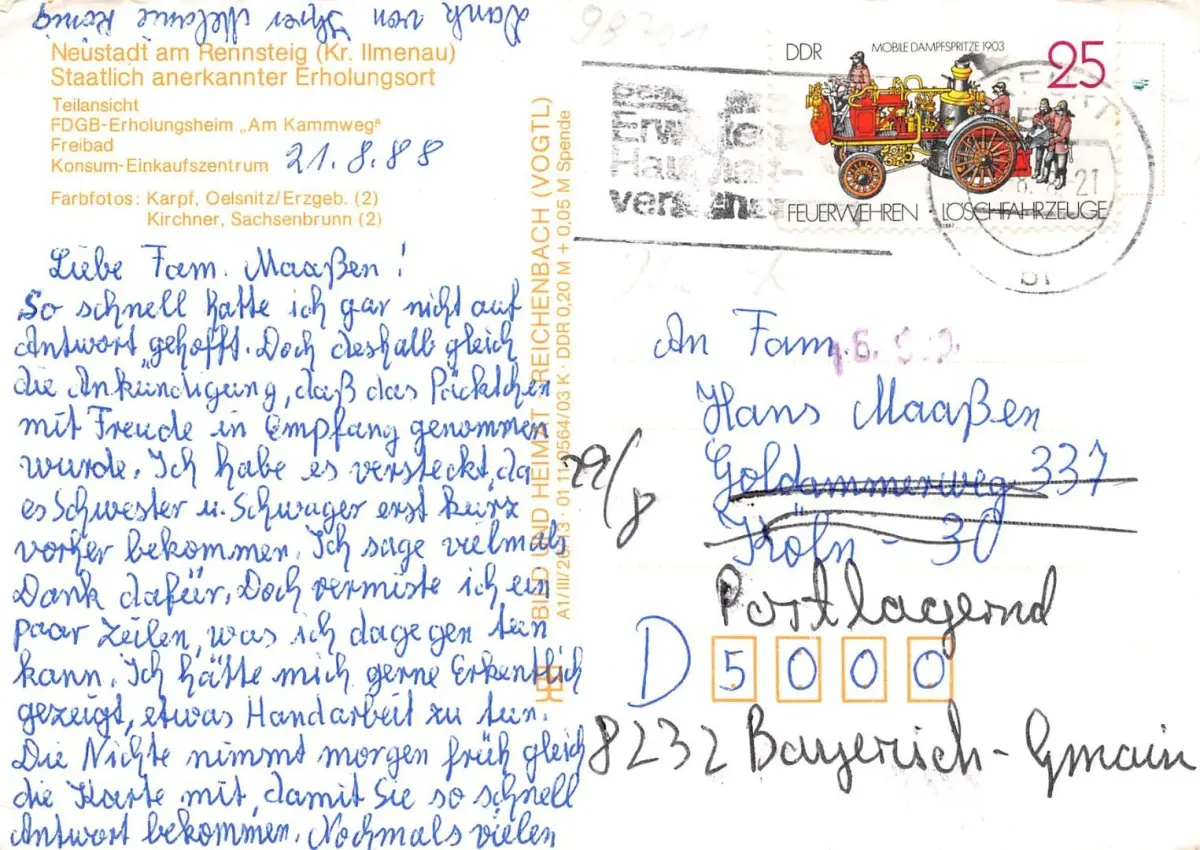 Neustadt am Rennsteig (Kr. Ilmenau)
Staatlich anerkannter Erholungsort
Teilansicht
FDGB-Erholungsheim „Am Kammweg"
Freibad
Konsum-Einkaufszentrum
21.8.88
Farbfotos: Karpf, Oelsnitz/Erzgeb. (2)
Kirchner, Sachsenbrunn (2)
Liebe Fam. Maaßen!
So schnell hatte ich gar nicht auf
Antwort gehofft. Doch deshalb gleich
die Ankündigung, daß das Päcktchen
mit Freude in Empfang genommen
wurde. Ich habe es versteckt, da
es Schwester u. Schwager erst kurz
vorher bekommen. Ich sage vielmals
Dank dafür. Doch vermiste ich ein
paar Zeilen, was ich dagegen tun
kann. Ich hätte mich gerne Erkentlich
gezeigt, etwas Handarbeit zu tun.
Die Nichte nimmt morgen früh gleich
die Karte mit, damit Sie so schnell
Antwort bekommen. Nochmals vielen
Dank von Ihrer Melanie König
BILD UND HEIMAT REICHENBACH (VOGTL)
A1/III/26/13 · 01 11 0564/03 K · DDR 0,20 M + 0,05 M Spende
DDR
MOBILE DAMPFSPRITZE 1903
25
FEUERWEHREN · LÖSCHFAHRZEUGE
An Fam.
Hans Maaßen
Goldammerweg 337
Köln - 30
29/8
Postlagernd
D 5000
8232 Bayerisch-Gmain